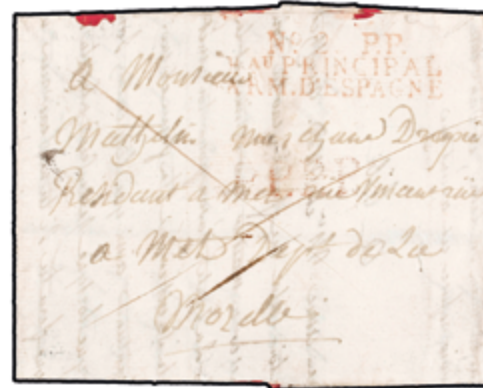 No. 2. P.P.
Bau PRINCIPAL
ARM. D'ESPAGNE
A Monsieur
Mathelin marchand Drapier
Rendant a Metz rue
a Metz Dept de La
Mozelle